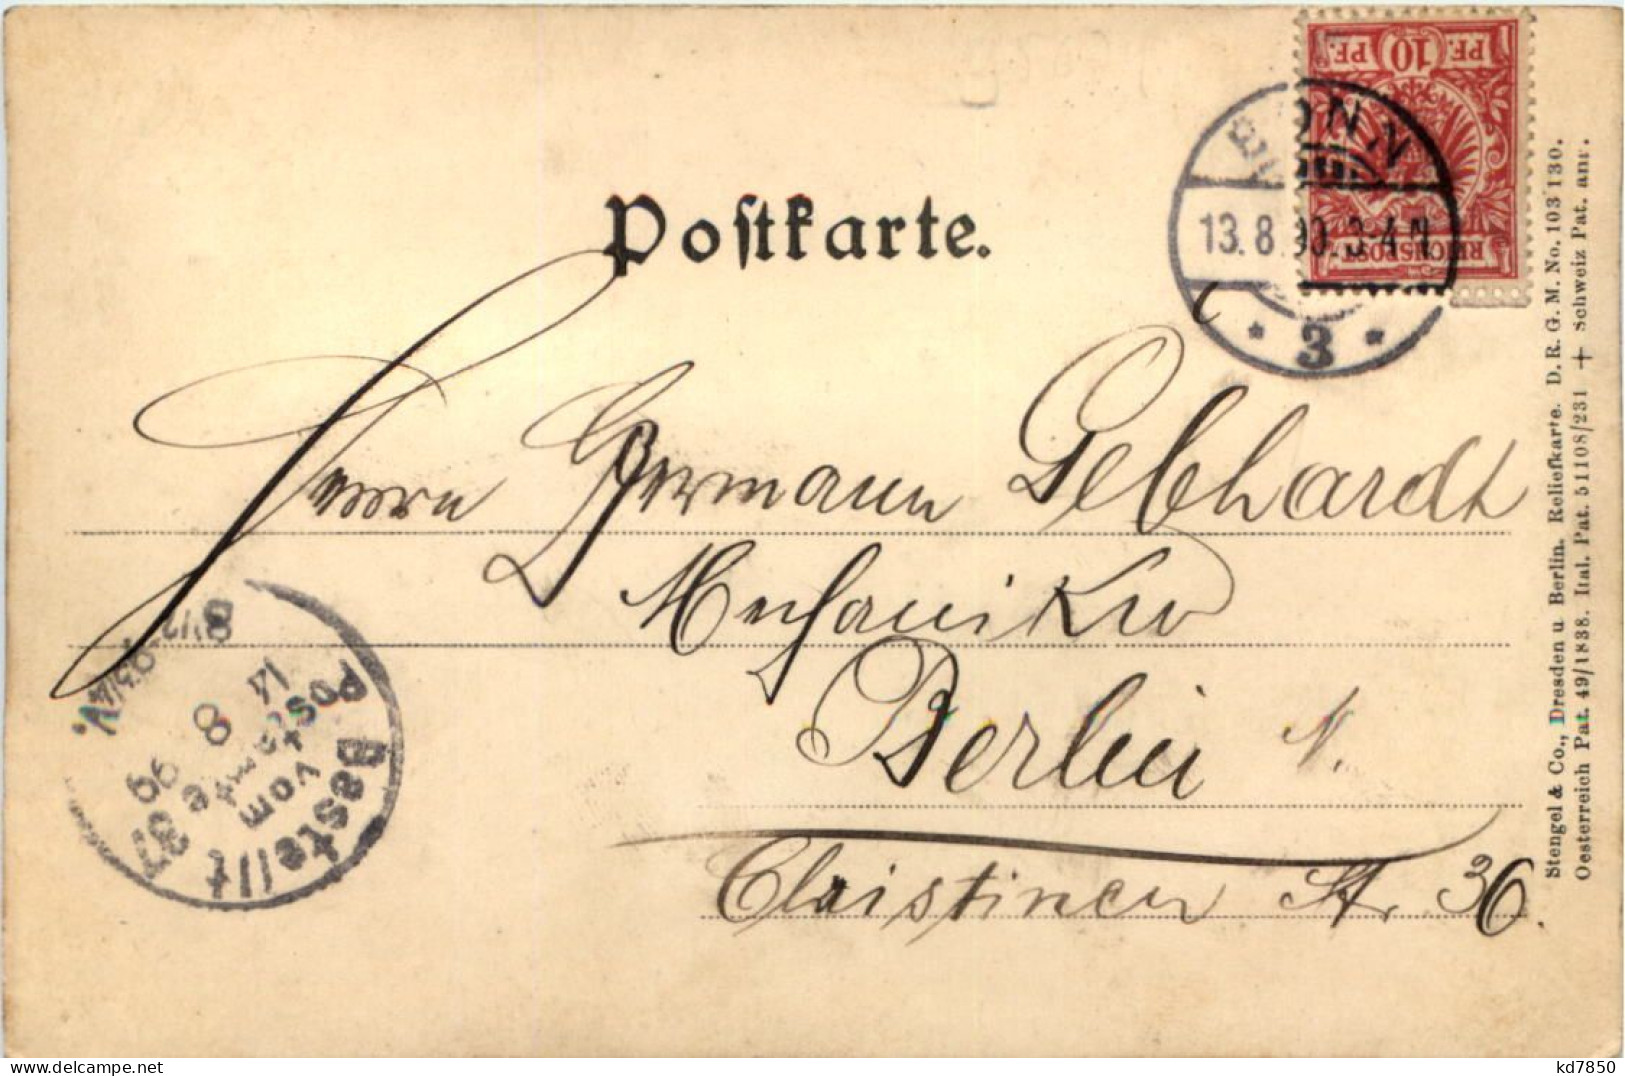 Postkarte.
10
PF.
PF.
REICHSPOST
BONN
13.8. 3-4 N
* 3 *
Herrn Hermann Gebhardt
Mechaniker
Berlin N.
Christinen Str. 36.
Bestellt
vom
Postamte
37
14 8 99
Stengel & Co., Dresden u Berlin. Reliefkarte. D. R. G. M. No. 103 130.
Oesterreich Pat. 49/1838. Ital. Pat. 51108/231 + Schweiz Pat. anr.
kd7850